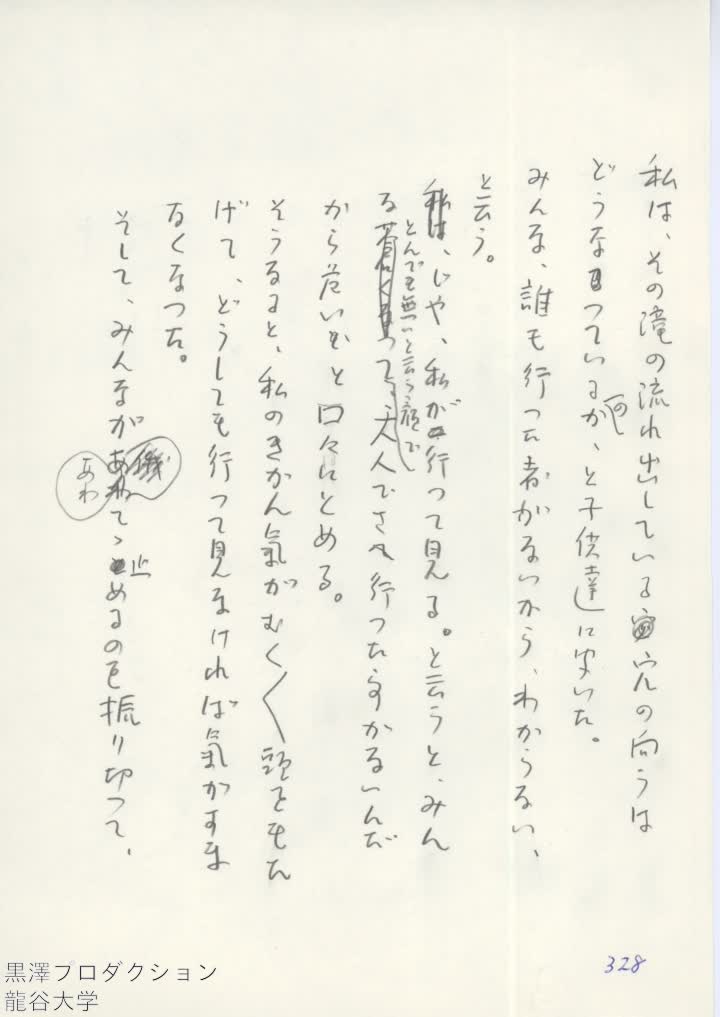 私は、その滝の流れ出している穴の向うは
どうなっているのか、と子供達に聞いた。
みんな、誰も行った者がないから、わからない、
と云う。
私は、じゃ、私が行って見る。と云うと、みん
な とんでも無いと云う顔で、大人でさへ行った事がないんだ
から危いと口々にとめる。
そうなると、私のきかん気がむく〱頭をもた
げて、どうしても行って見なければ気がすま
なくなった。
そして、みんながあわてゝ止めるのを振り切って、
328
黒澤プロダクション
龍谷大学